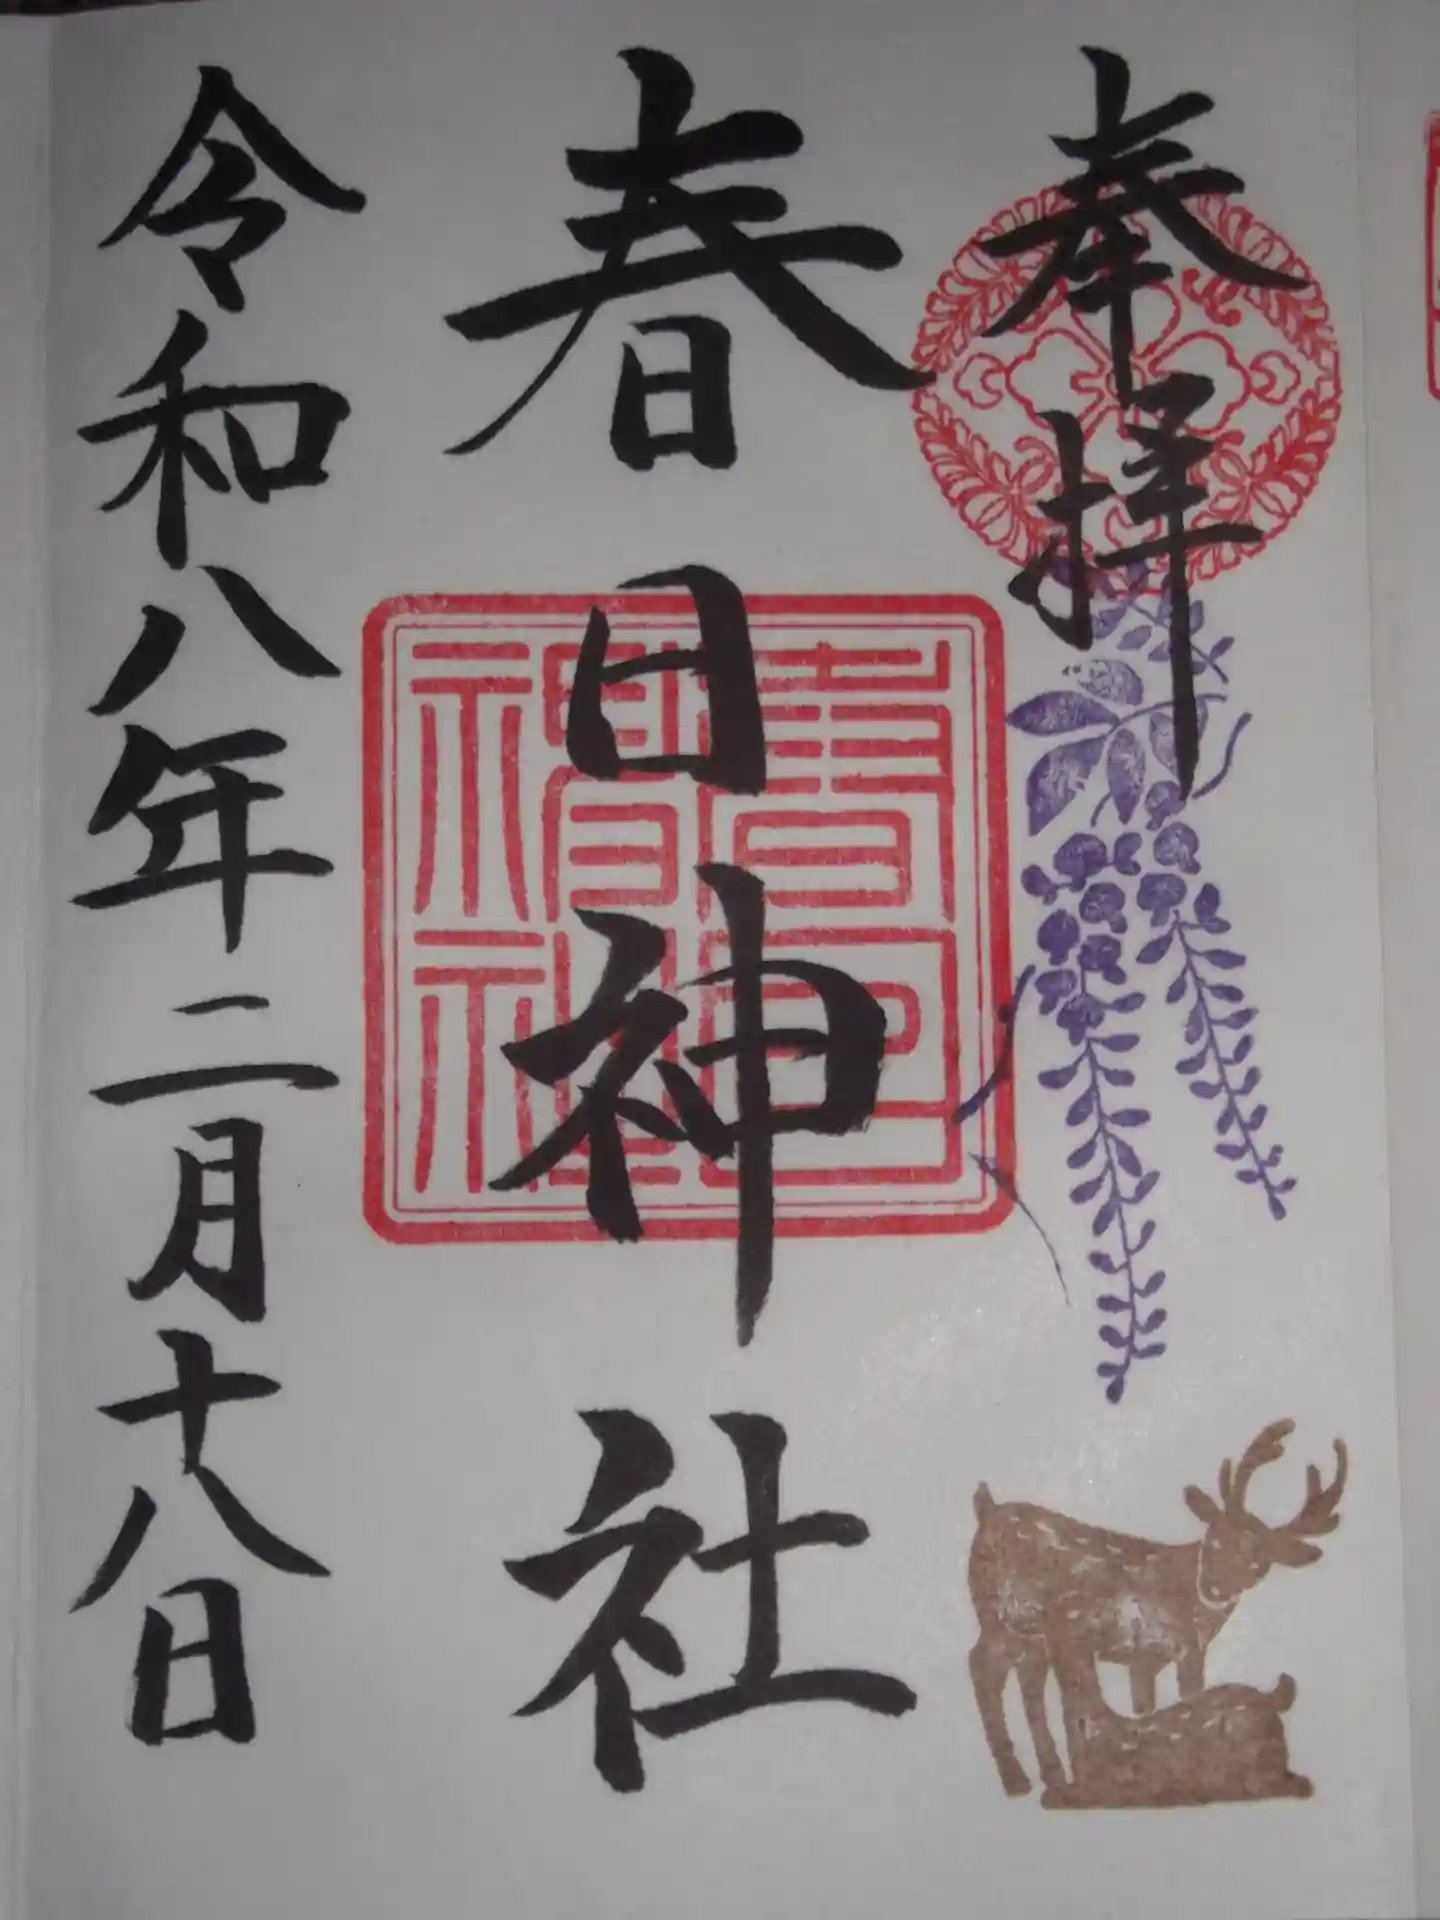 奉拝
春日神社
春日神社
令和八年二月十八日